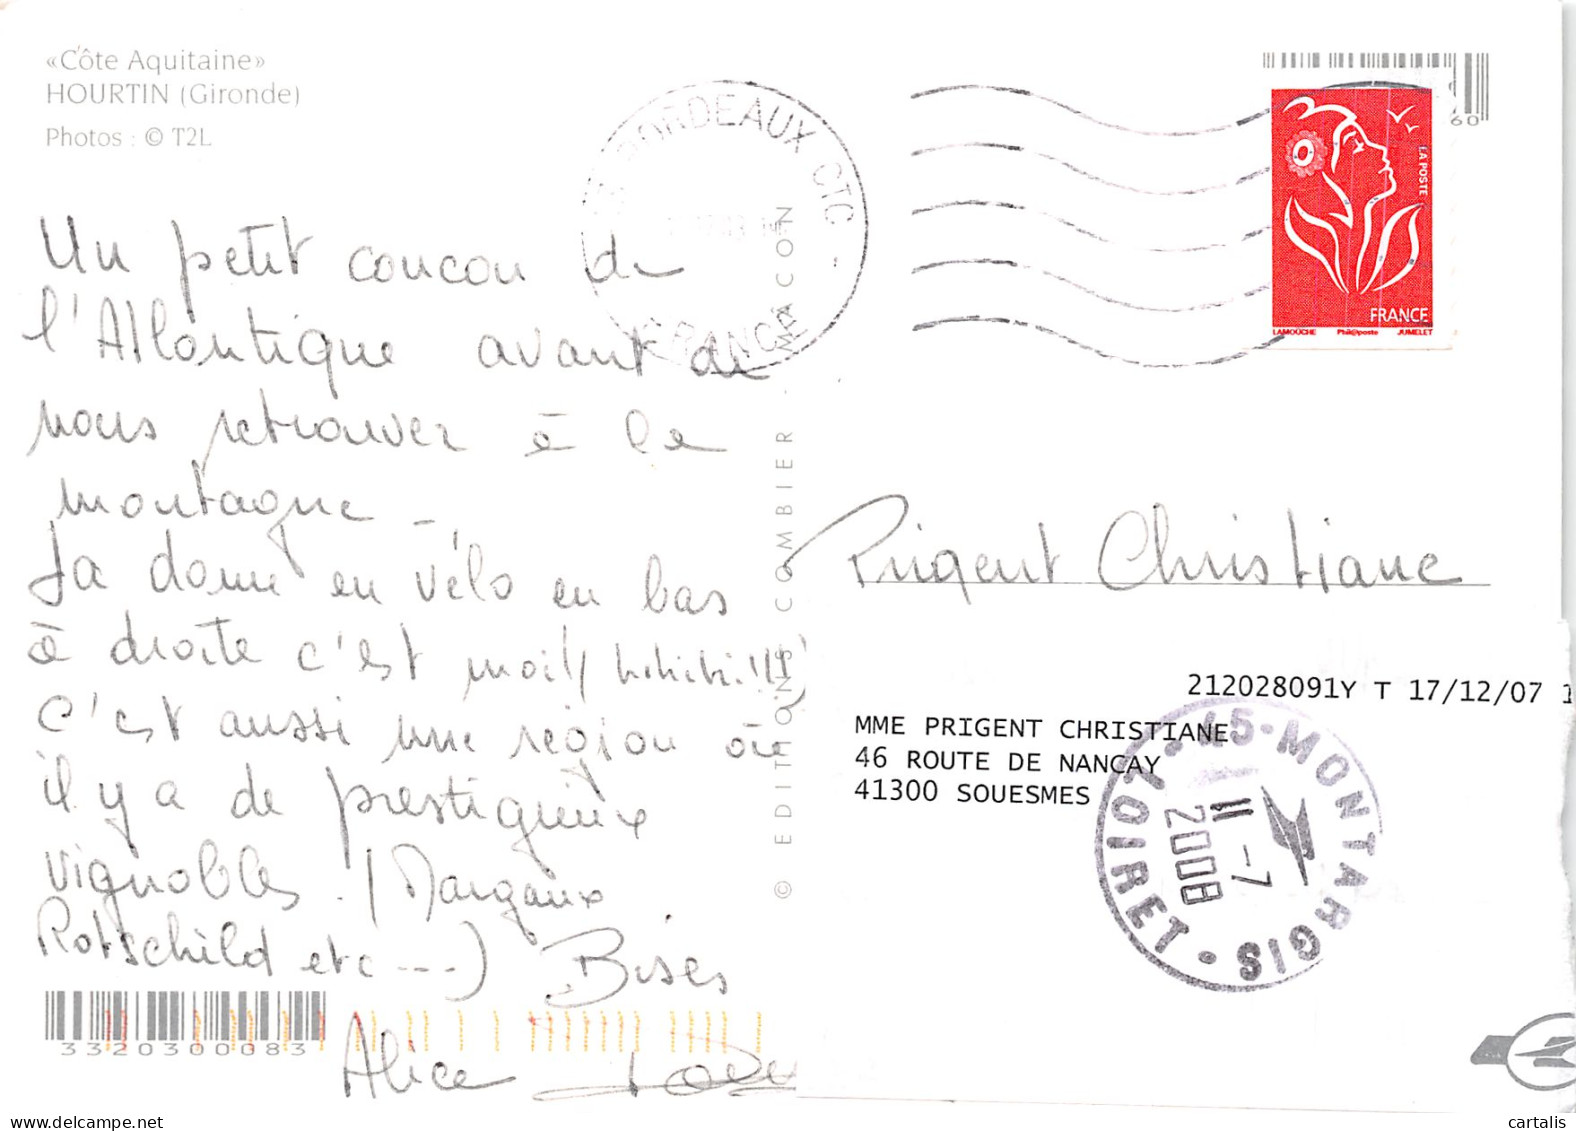 «Côte Aquitaine»
HOURTIN (Gironde)
Photos : © T2L
Un petit coucou de
l'Atlantique avant de
nous retrouver à la
montagne _
La dame en vélo en bas
à droite c'est moi!! hihihi!!!
C'est aussi une région où
il y a de prestigieux
vignobles. (Margaux
Rotschild etc ---) Bises
Alice
3320300083
BORDEAUX CTC
FRANCE
© EDITIONS COMBIER - MÂCON
60
LA POSTE
FRANCE
LAMOUCHE Phil@poste JUMELET
Prigent Christiane
212028091Y T 17/12/07 1
MME PRIGENT CHRISTIANE
46 ROUTE DE NANCAY
41300 SOUESMES
45-MONTARGIS
LOIRET
11-7
2008
cartalis